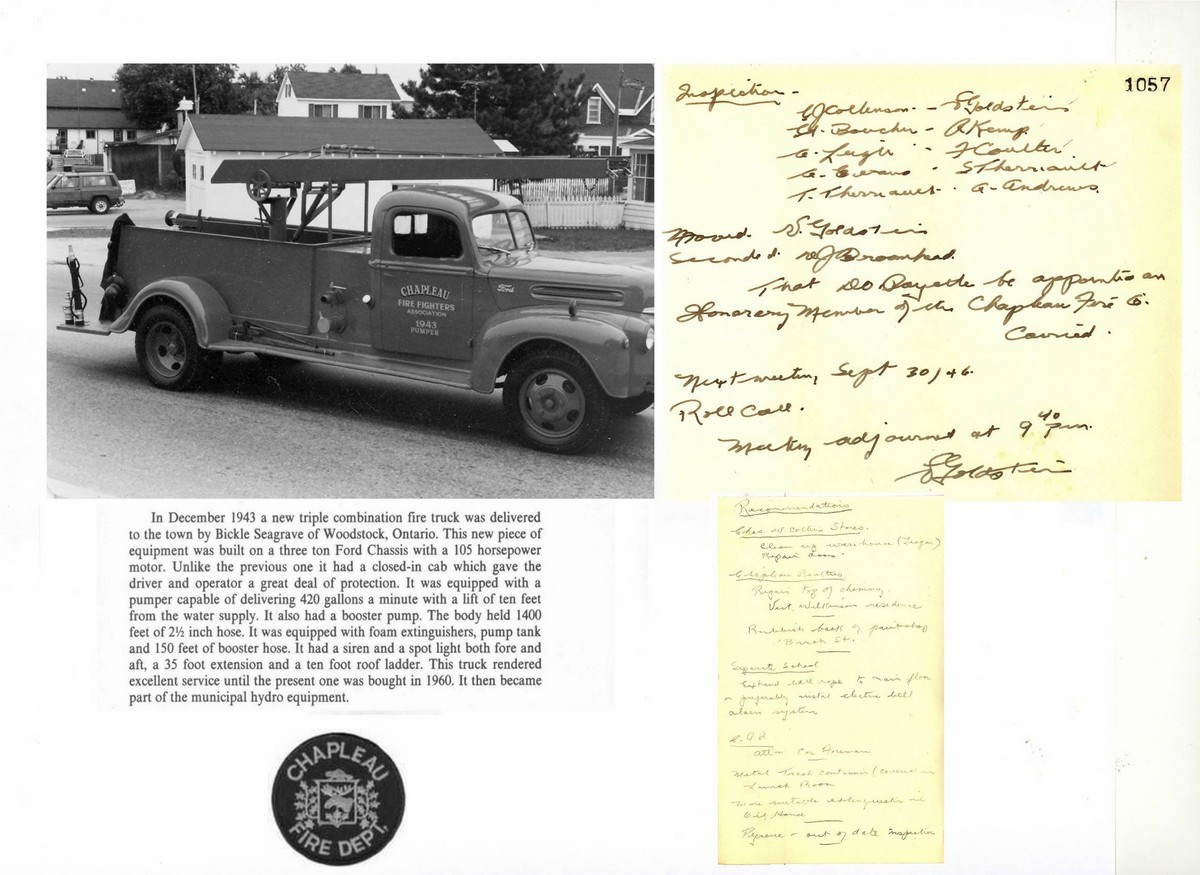 CHAPLEAU
FIRE FIGHTERS
ASSOCIATION
1943
PUMPER
Ford
1057
Inspection -
Collinson - S Goldstein
Boucher - A Kemp
G. Leigh - J Coulter
G. Evans - S Therriault
T. Therriault - G. Andrews.
Moved. S. Goldstein
Seconded. WJ Broomhead.
That DO Payette be appointed an
Honorary Member of the Chapleau Fire Co.
Carried.
Next meeting Sept 30/46.
Roll Call.
Meeting adjourned at 9 40 p.m.
S Goldstein
In December 1943 a new triple combination fire truck was delivered
to the town by Bickle Seagrave of Woodstock, Ontario. This new piece of
equipment was built on a three ton Ford Chassis with a 105 horsepower
motor. Unlike the previous one it had a closed-in cab which gave the
driver and operator a great deal of protection. It was equipped with a
pumper capable of delivering 420 gallons a minute with a lift of ten feet
from the water supply. It also had a booster pump. The body held 1400
feet of 2½ inch hose. It was equipped with foam extinguishers, pump tank
and 150 feet of booster hose. It had a siren and a spot light both fore and
aft, a 35 foot extension and a ten foot roof ladder. This truck rendered
excellent service until the present one was bought in 1960. It then became
part of the municipal hydro equipment.
Recommendations
Chas. W. Collins Stores.
Clean up warehouse
Repair door.
Repair top of chimney.
Vict. Wilkinson residence
Rubbish back of paint shop
Birch St.
Separate School
Extend bell rope to main floor
or preferably instal electric bell
alarm system
Foreman
Metal trash container (covered) in
Lunch Room
More suitable extinguisher in
Oil House
Pyrene - out of date Inspection
CHAPLEAU
FIRE DEPT.